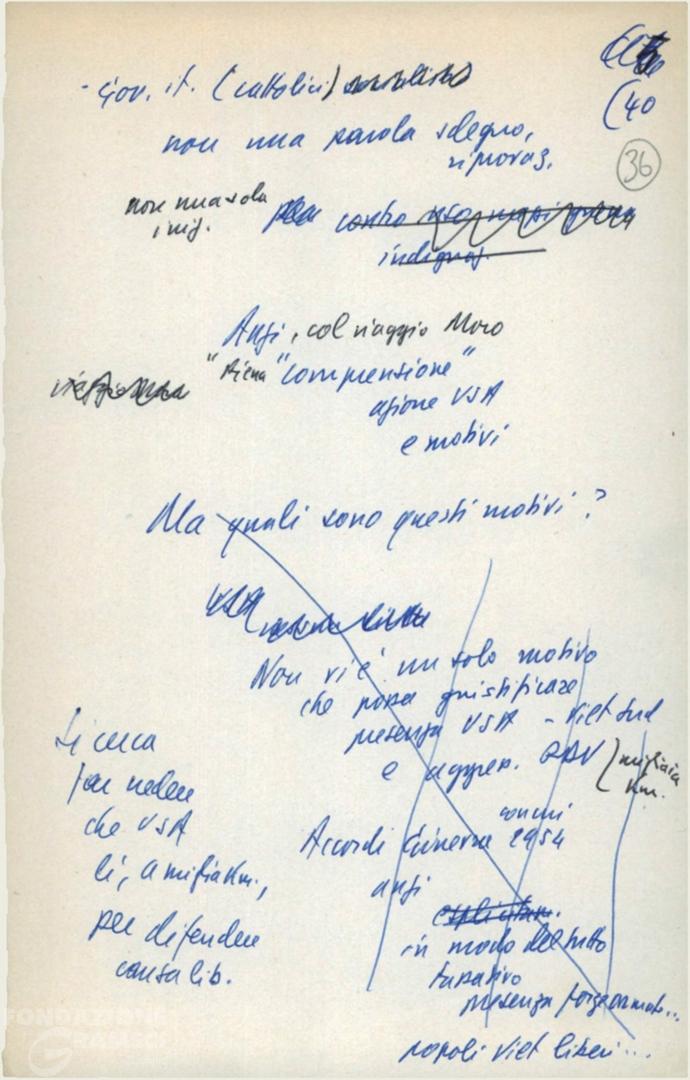 (40
36
- Gov. it. (cattolici) socialisti
non una parola sdegno,
riprovaz.
non una sola
iniz.
contro uso mezzi guerra
indignaz.
Anzi, col viaggio Moro
"piena "comprensione"
azione USA
e motivi
Ma quali sono questi motivi?
USA
Non vi è un solo motivo
che possa giustificare
presenza USA - Viet Sud
e aggres. RDV
migliaia
Km.
Accordi Ginevra 1954
anzi
esplicitam.
in modo del tutto
tassativo
presenza forze armate...
popoli Viet liberi...
Si cerca
far vedere
che USA
lì, a miglia Km.,
per difendere
causa lib.
FONDAZIONE
GRAMSCI